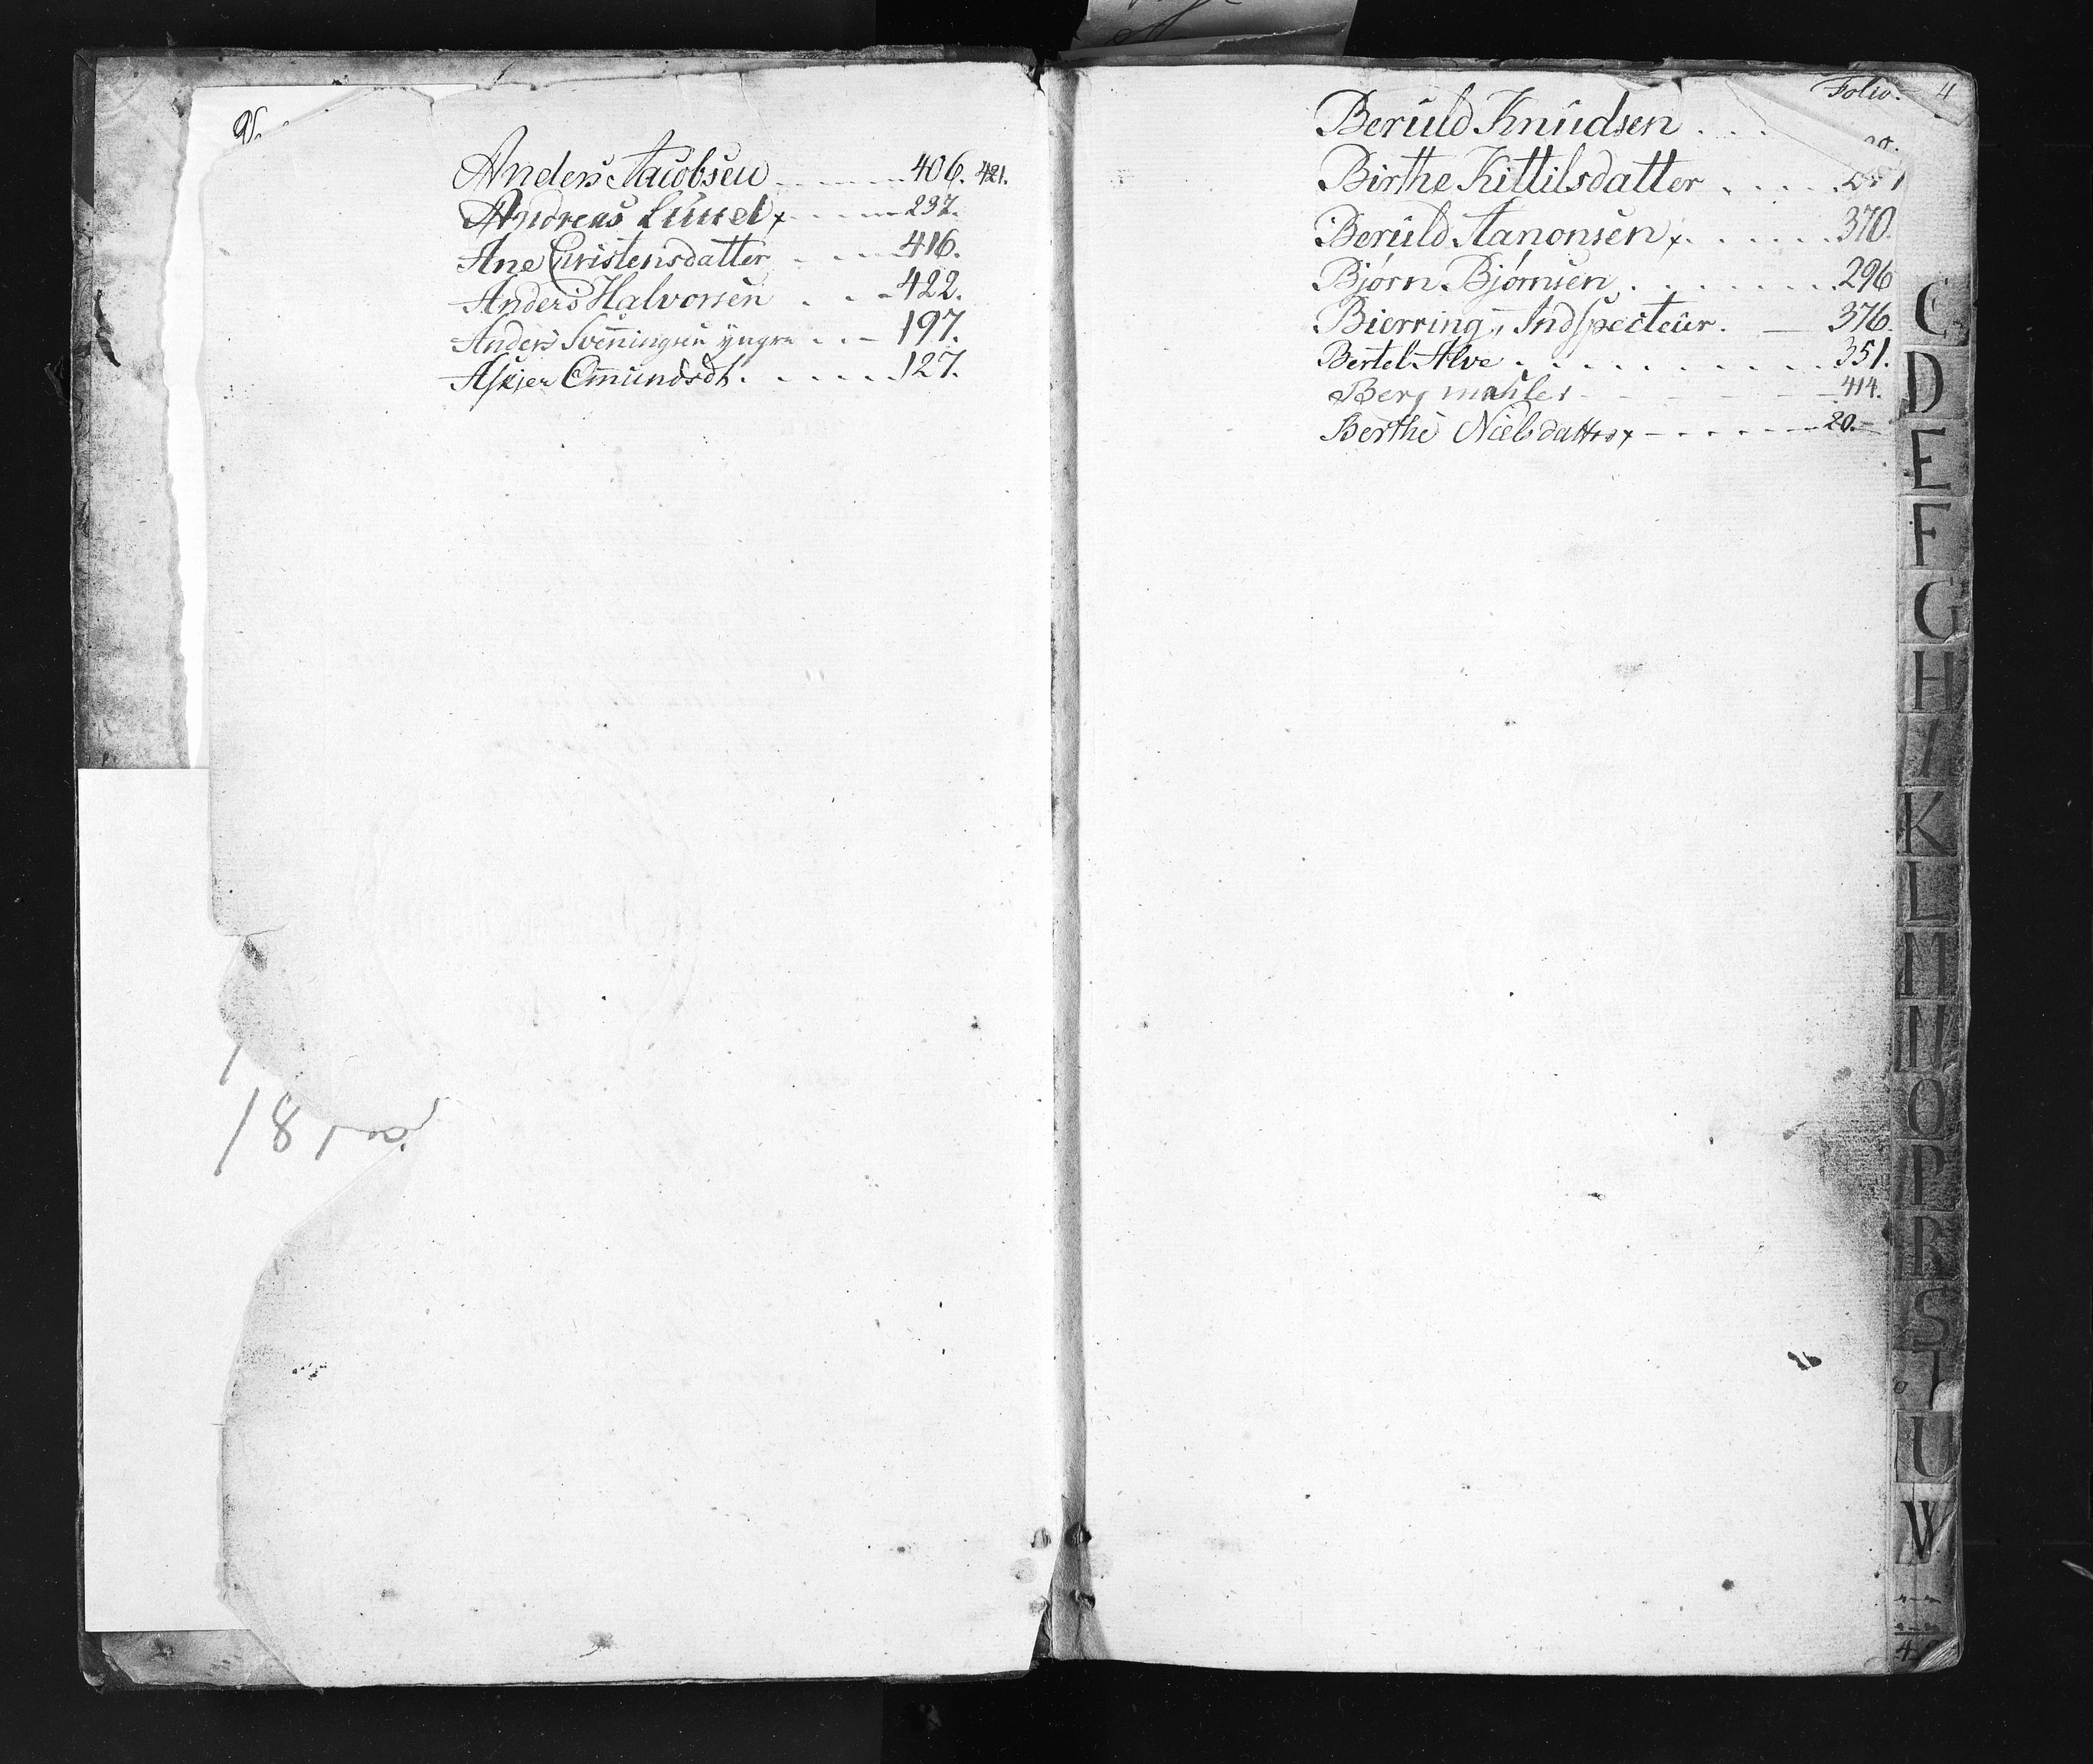 Anders Jacobsen 406. 421.
Andreas 237.
Ane Christensdatter 416.
Anders Halvorsen 422.
Anders Svenningsen yngre 197.
Askier Omundsdt. 127.
18
Folio. 4
Beruld Knudsen
Birthe Kittilsdatter
Beruld Aanonsen x 370.
Bjørn Bjørnsen 296
Bierring, Indspecteur. 376.
Bertel Alve 351.
Berg mahler 414.
Berthe Nielsdatter x 20.
C
D
E
F
G
H
I
K
L
M
N
O
P
R
S
T
U
W